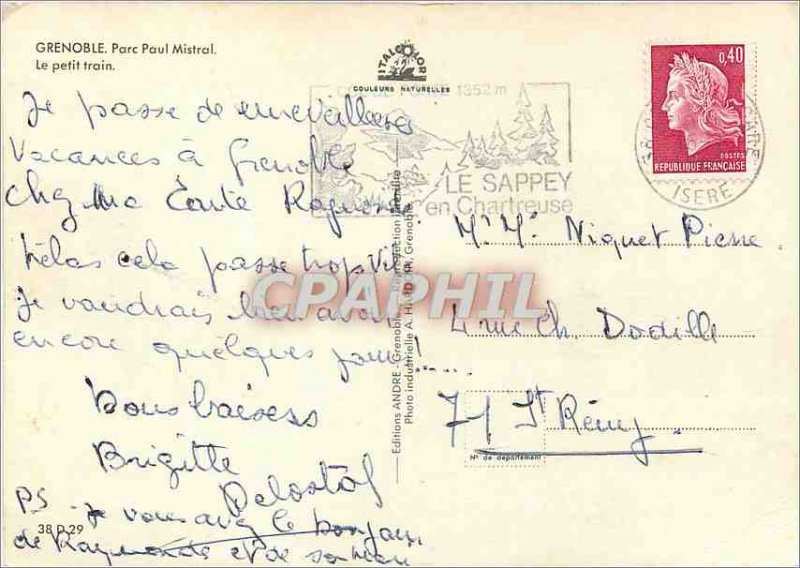 GRENOBLE. Parc Paul Mistral.
Le petit train.
ITALCOLOR
COULEURS NATURELLES
0,40
POSTES
REPUBLIQUE FRANÇAISE
ISERE
1352 m
LE SAPPEY
en Chartreuse
Je passe de merveilleuses
Vacances à Grenoble
Chez Ma Tante Raymonde
hélas cela passe trop vite
Je voudrais bien avoir
encore quelques jours!......
bons baisers
Brigitte
Delostal
PS Je vous avez le bonjour
de Raymonde et de son
38 D 29
Editions ANDRE - Grenoble - Reproduction interdite
Photo industrielle A. HARDOIA, Grenoble
CPAPHIL
Mr Me Niquet Pierre
4 rue Ch. Dodille
71 St Rémy
N° de département